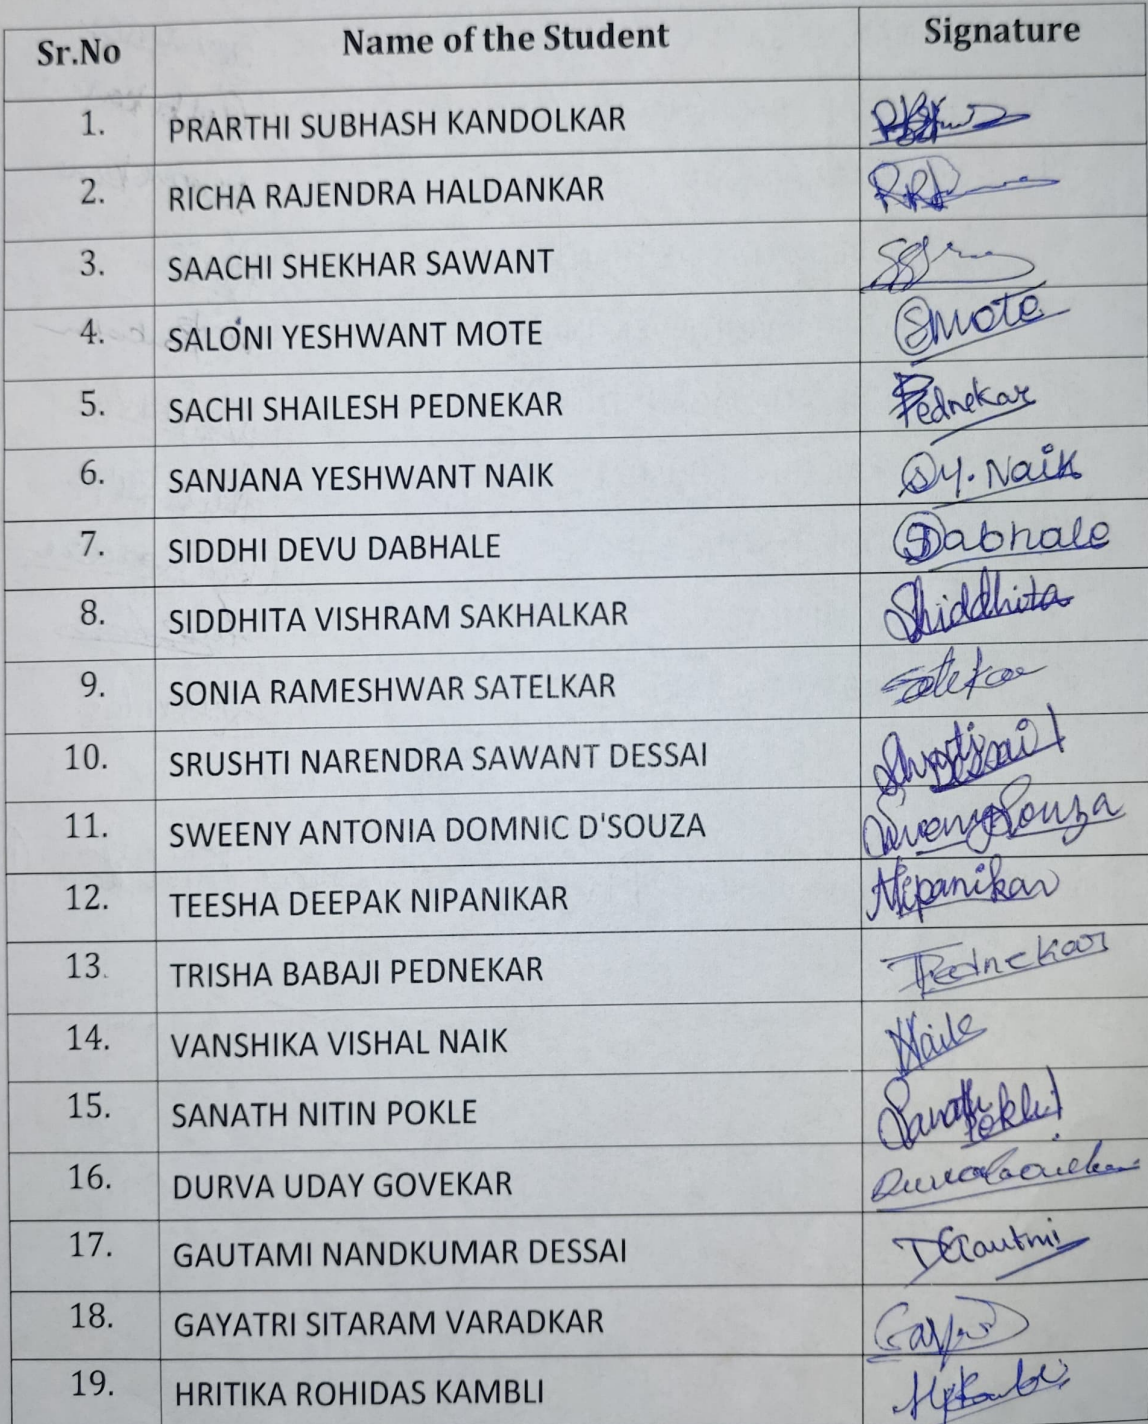 Sr.No Name of the Student Signature
1. PRARTHI SUBHASH KANDOLKAR
2. RICHA RAJENDRA HALDANKAR
3. SAACHI SHEKHAR SAWANT
4. SALONI YESHWANT MOTE Smote
5. SACHI SHAILESH PEDNEKAR Pednekar
6. SANJANA YESHWANT NAIK SY. Naik
7. SIDDHI DEVU DABHALE Dabhale
8. SIDDHITA VISHRAM SAKHALKAR Shiddhita
9. SONIA RAMESHWAR SATELKAR
10. SRUSHTI NARENDRA SAWANT DESSAI
11. SWEENY ANTONIA DOMNIC D'SOUZA
12. TEESHA DEEPAK NIPANIKAR Nipanikar
13. TRISHA BABAJI PEDNEKAR Pednekar
14. VANSHIKA VISHAL NAIK Naik
15. SANATH NITIN POKLE
16. DURVA UDAY GOVEKAR
17. GAUTAMI NANDKUMAR DESSAI
18. GAYATRI SITARAM VARADKAR
19. HRITIKA ROHIDAS KAMBLI